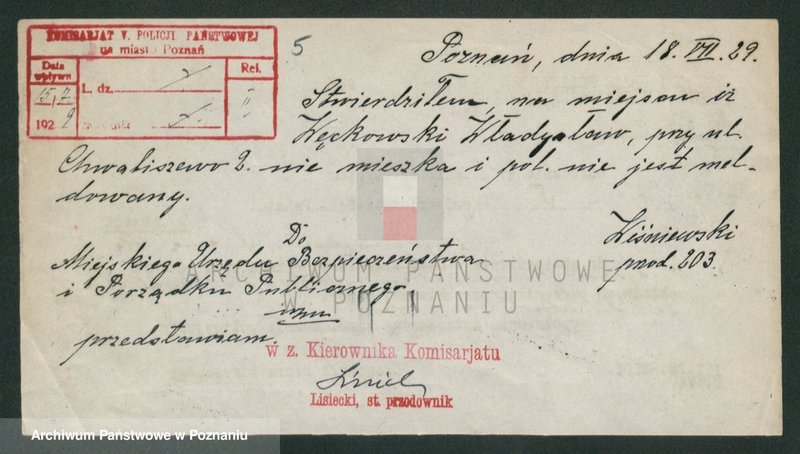 KOMISARJAT V. POLICJI PAŃSTWOWEJ
na miasto Poznań
Data
wpływu
Ref.
L. dz.
15/7
II
192 9
5
Poznań, dnia 18. VII. 29.
Stwierdziłem, na miejscu iż
Węckowski Władysław, przy ul.
Chwaliszewo 2. nie mieszka i pol. nie jest mel-
dowany.
Wiśniewski
przod. 203.
Do
Miejskiego Urzędu Bezpieczeństwa
i Porządku Publicznego
przedstawiam.
w z. Kierownika Komisarjatu
Lisiecki, st. przodownik
ARCHIWUM PAŃSTWOWE
W POZNANIU
Archiwum Państwowe w Poznaniu